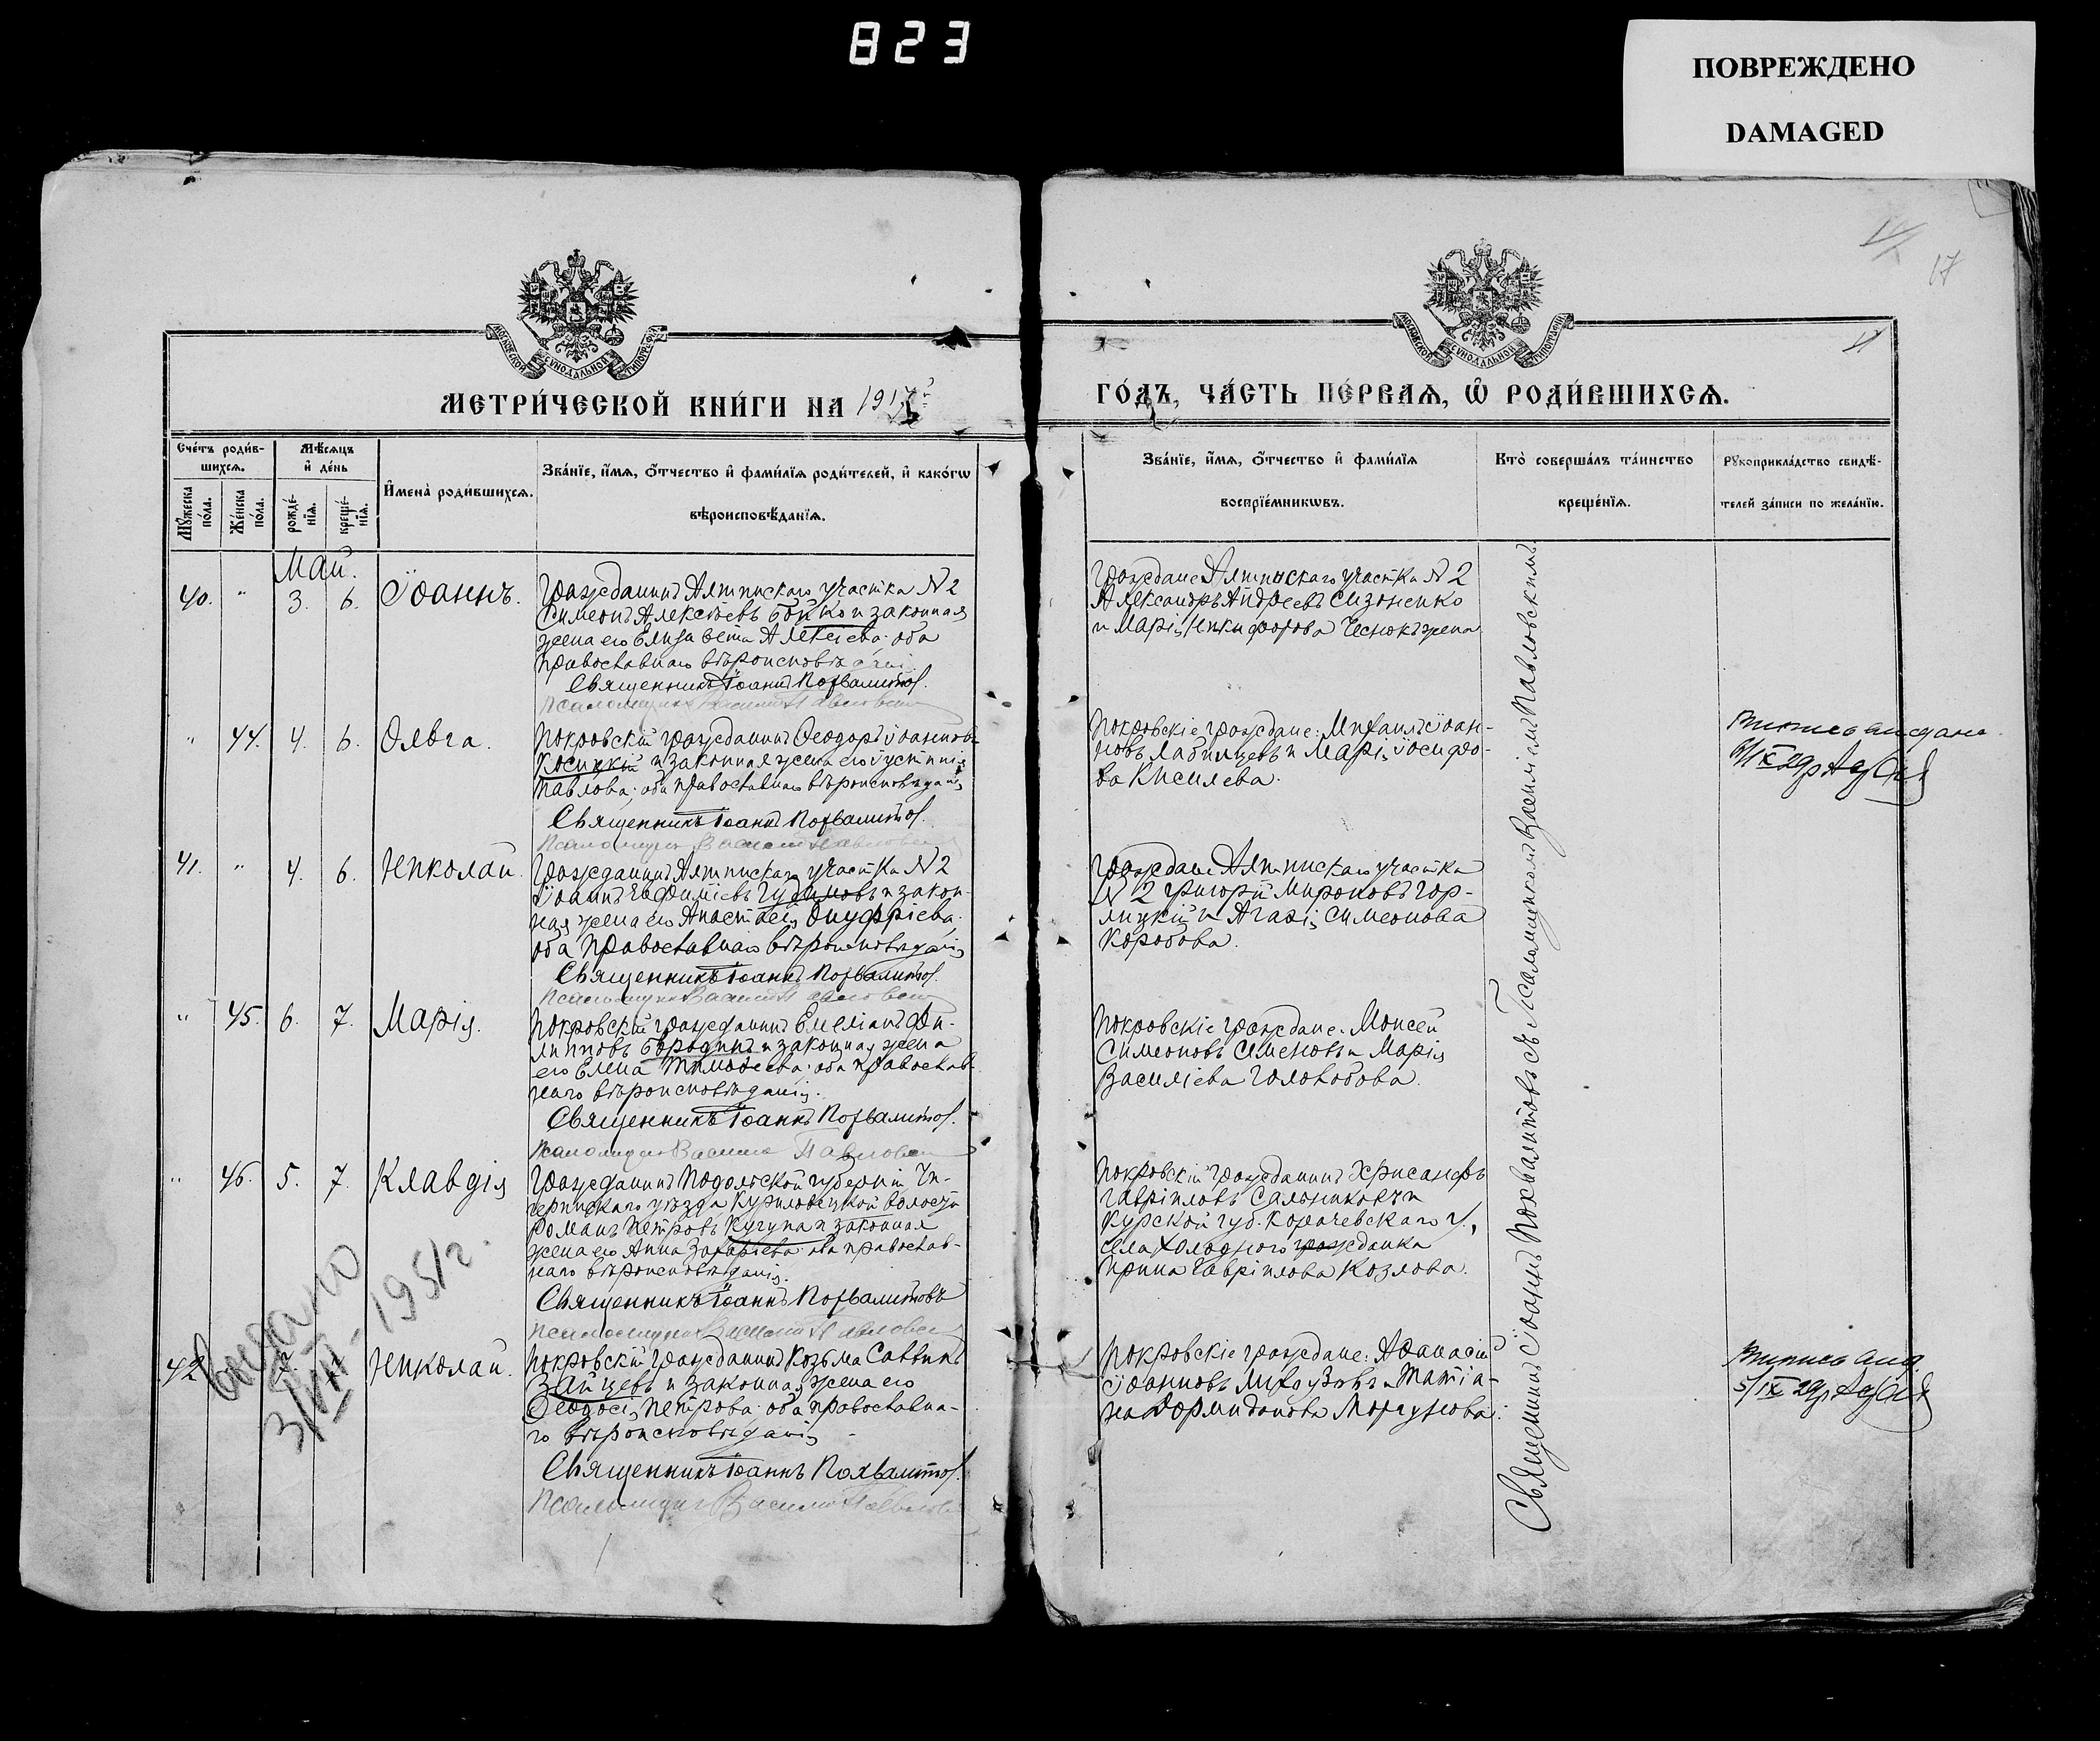 823
ПОВРЕЖДЕНО
DAMAGED
17
МОСКОВСКОЙ СѴНОДАЛЬНОЙ ТИПОГРАФІИ
МОСКОВСКОЙ СѴНОДАЛЬНОЙ ТИПОГРАФІИ
МЕТРИ́ЧЕСКОЙ КНИ́ГИ НА 1917
ГО́ДЪ, ЧА́СТЬ ПЕ́РВАѦ, Ѽ РОДИ́ВШИХСѦ.
Сче́тъ роди́в-
шихсѧ.
Мѣ́сѧцъ
и҆ де́нь
Мꙋ́жеска по́ла.
Же́нска по́ла.
рожде́-
нїѧ.
креще́-
нїѧ.
И҆мена̀ роди́вшихсѧ.
Зва́нїе, и҆́мѧ, ѻ҆́тчество и҆ фами́лїѧ роди́телей, и҆ како́гѡ
вѣроисповѣ́данїѧ.
Зва́нїе, и҆́мѧ, ѻ҆́тчество и҆ фами́лїѧ
воспрїе́мникѡвъ.
Кто̀ соверша́лъ та́инство
креще́нїѧ.
Рꙋкоприкла́дство свидѣ́-
телей за́писи по жела́нїю.
Май.
40. " 3. 6. Іоаннъ.
Гражданинъ Ялтинскаго участка N 2
Симеонъ Алексѣевъ Бойко и законная
жена его Елизавета Алексѣева; оба
православнаго вѣроисповѣданія.
Священникъ Іоаннъ Похвалитов.
Псаломщикъ Василій Павловскій
Граждане Ялтинскаго участка N 2
Александръ Андреевъ Сизоненко
и Марія Никифорова Чеснокъ жена
" 44. 4. 6. Ольга.
Покровскій гражданинъ Ѳеодоръ Іоанновъ
Косицкій и законная жена его Іустинія
Павлова; оба православнаго вѣроисповѣданія
Священникъ Іоаннъ Похвалитов.
Псаломщикъ Василій Павловскій
Покровскіе граждане: Михаилъ Іоан-
новъ Лабинцевъ и Марія Іосифо-
ва Киселева.
Выпись выдана
6/IX 29
41. " 4. 6. Николай.
Гражданинъ Ялтинскаго участка N 2
Іоаннъ Евфиміевъ Гудимовъ и закон-
ная жена его Анастасія Онуфріева;
оба православнаго вѣроисповѣданія
Священникъ Іоаннъ Похвалитов.
Псаломщикъ Василій Павловскій
Граждане Ялтинскаго участка
N 2 Григорій Мироновъ Гор-
лицкій и Агафія Симеонова
Коробова.
" 45. 6. 7. Марія.
Покровскій гражданинъ Емеліанъ Фи-
липповъ Бородинъ и законная жена
его Елена Тимоѳеева; оба православ-
наго вѣроисповѣданія.
Священникъ Іоаннъ Похвалитов.
Псаломщикъ Василій Павловскій
Покровскіе граждане: Моисей
Симеоновъ Семеновъ и Марія
Василіева Головобова.
" 46. 5. 7. Клавдія
Гражданинъ Подольской губерніи
уѣзда Куриловецкой волости
Романъ Петровъ Кугупа и законная
жена его Анна Захаріева; оба православ-
наго вѣроисповѣданія.
Священникъ Іоаннъ Похвалитовъ
Псаломщикъ Василій Павловскій
Покровскій гражданинъ Хрисанфъ
Гавріиловъ Сальниковъ и
Курской губ. Корочевскаго у.,
села Холоднаго гражданка
Ирина Гавріилова Козлова.
Выдано
3/VII - 1951 г.
42 7. Николай.
Покровскій гражданинъ Козьма Саввинъ
Зайцевъ и законная жена его
Ѳеодосія Петрова; оба православна-
го вѣроисповѣданія
Священникъ Іоаннъ Похвалитов.
Псаломщикъ Василій Павловскій
Покровскіе граждане: Аѳанасій
Іоанновъ и Татіа-
на Дормидонова Моргунова.
Выпись выд.
5/IX 29
Священникъ Іоаннъ Похвалитовъ съ Псаломщикомъ Василіемъ Павловскимъ.